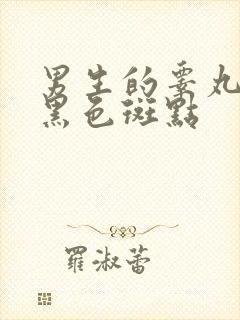 男生的睪丸
黑色斑點
羅淑蕾